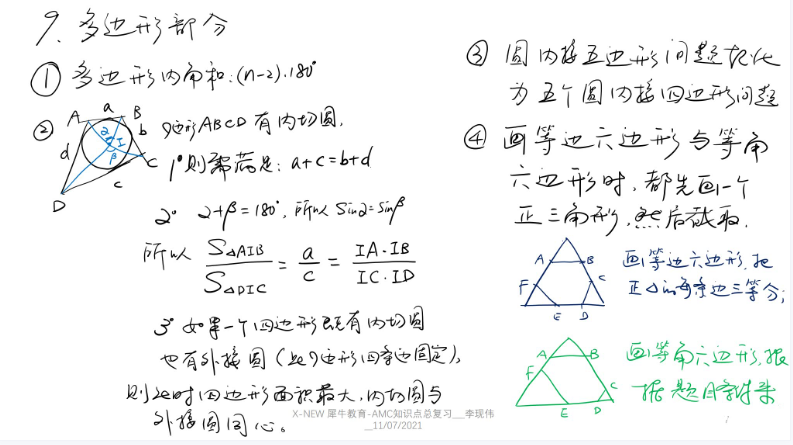 9、多边形部分
① 多边形内角和：(n-2)·180°
②
A a B
b
C
c
D
d
α I
β
四边形ABCD有内切圆，
1° 则需满足：a+c=b+d
2° α+β=180°，所以 Sinα=Sinβ
所以 S△AIB / S△DIC = a/c = IA·IB / IC·ID
3° 如果一个四边形既有内切圆
也有外接圆（此四边形四条边固定），
则此时四边形面积最大，内切圆与
外接圆同心。
③ 圆内接五边形问题转化
为五个圆内接四边形问题
④ 画等边六边形与等角
六边形时，都先画一个
正三角形，然后截取，
A B
F C
E D
画等边六边形，把
正△的每条边三等分；
A B
F C
E D
画等角六边形，根
据题目条件来
X-NEW 犀牛教育-AMC知识点总复习__李现伟
__11/07/2021